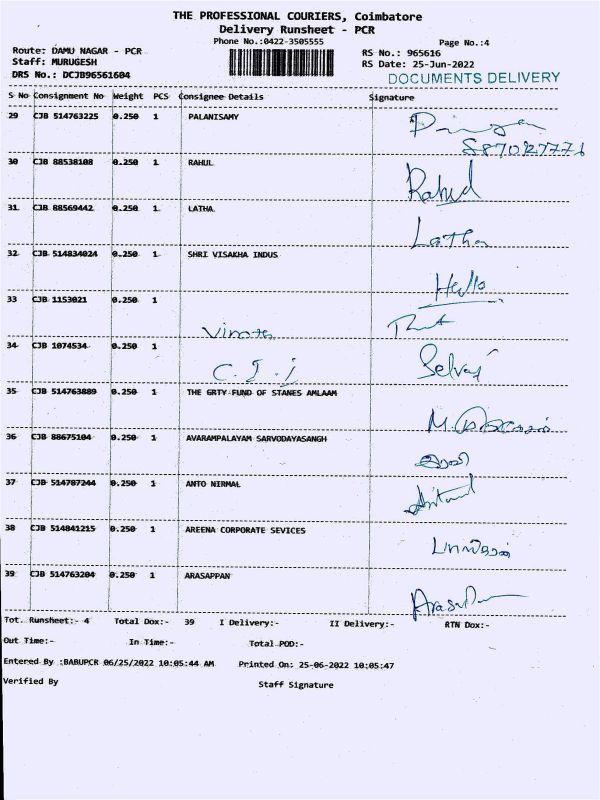 THE PROFESSIONAL COURIERS, Coimbatore
Delivery Runsheet - PCR
Phone No.:0422-3505555
Page No.:4
Route: DAMU NAGAR - PCR
RS No.: 965616
Staff: MURUGESH
RS Date: 25-Jun-2022
DRS No.: DCJB96561604
DOCUMENTS DELIVERY
S No Consignment No Weight PCS Consignee Details Signature
29 CJB 514763225 0.250 1 PALANISAMY
30 CJB 88538108 0.250 1 RAHUL Rahul
31 CJB 88569442 0.250 1 LATHA Latha
32 CJB 514834024 0.250 1 SHRI VISAKHA INDUS Hello
33 CJB 1153021 0.250 1
34 CJB 1074534 0.250 1 Selvaj
35 CJB 514763889 0.250 1 THE GRTY FUND OF STANES AMLAAM
36 CJB 88675104 0.250 1 AVARAMPALAYAM SARVODAYASANGH
37 CJB 514787244 0.250 1 ANTO NIRMAL
38 CJB 514841215 0.250 1 AREENA CORPORATE SEVICES
39 CJB 514763204 0.250 1 ARASAPPAN
Tot. Runsheet:- 4 Total Dox:- 39 I Delivery:- II Delivery:- RTN Dox:-
Out Time:- In Time:- Total POD:-
Entered By :BABUPCR 06/25/2022 10:05:44 AM Printed On: 25-06-2022 10:05:47
Verified By Staff Signature